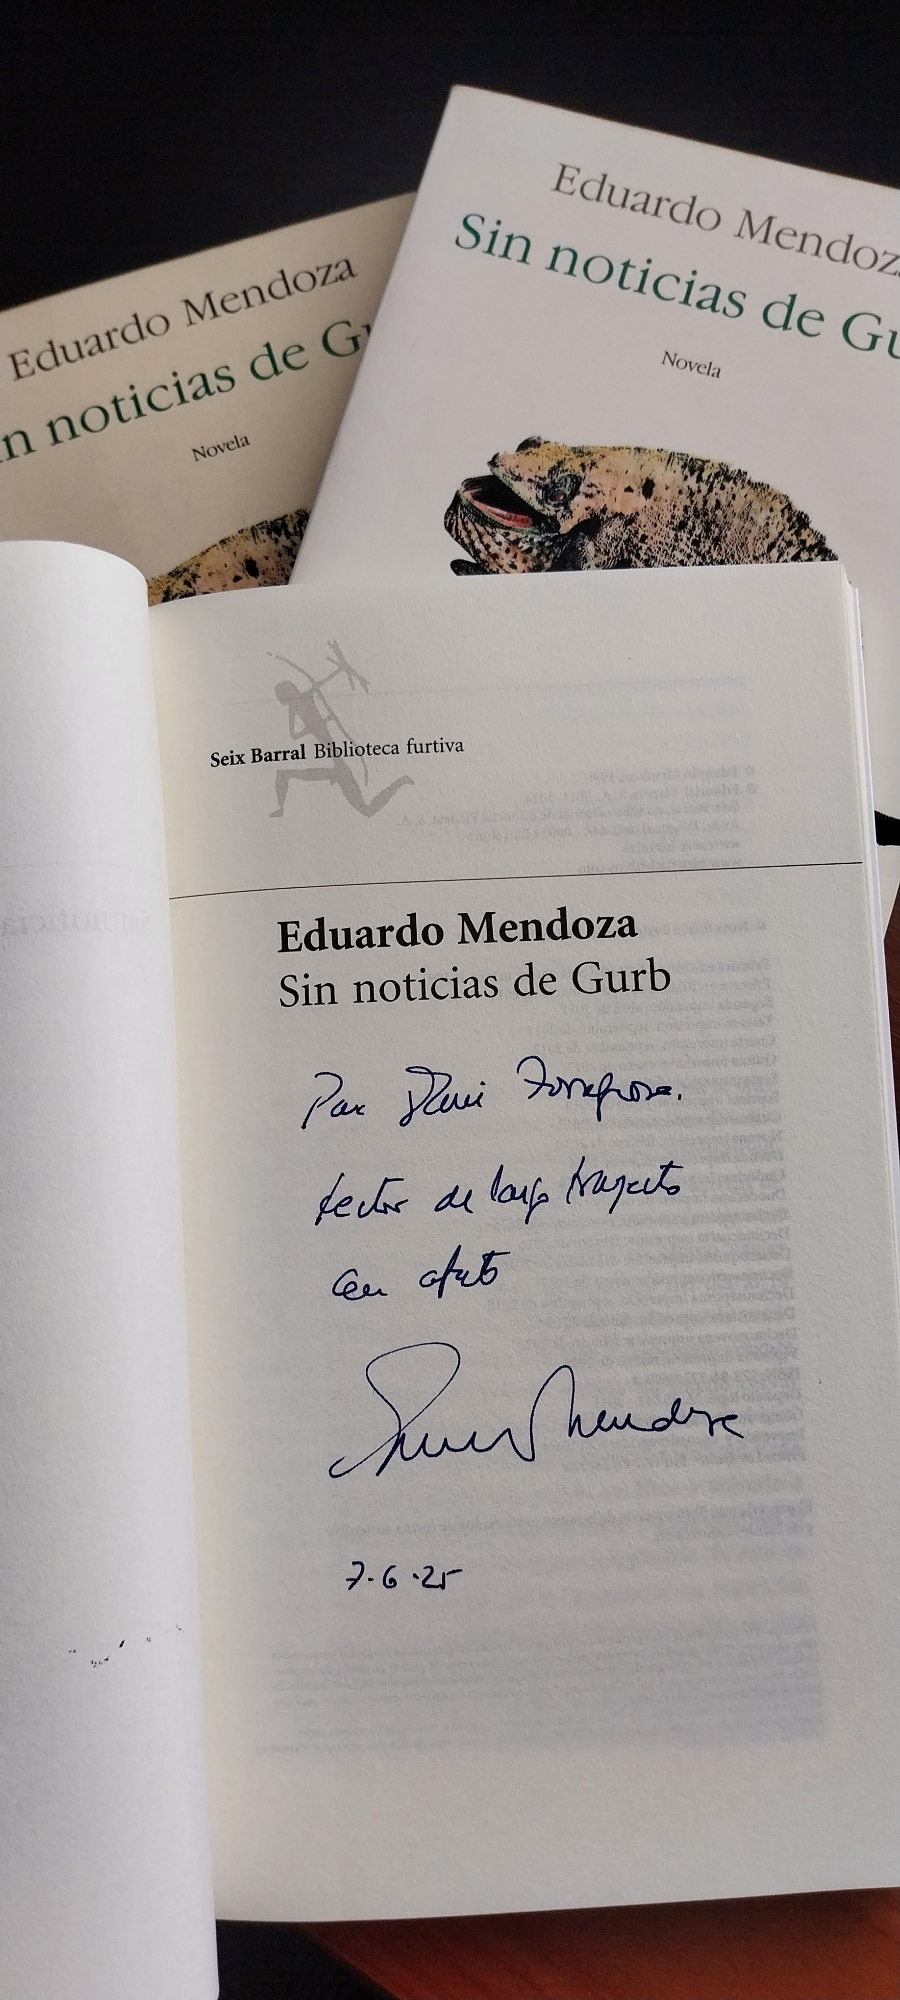 Eduardo Mendoz
Sin noticias de Gu
Novela
Eduardo Mendoza
n noticias de Gu
Novela
Seix Barral Biblioteca furtiva
Eduardo Mendoza
Sin noticias de Gurb
Para
lector de largo trayecto
con afecto
Eduardo Mendoza
7.6.25